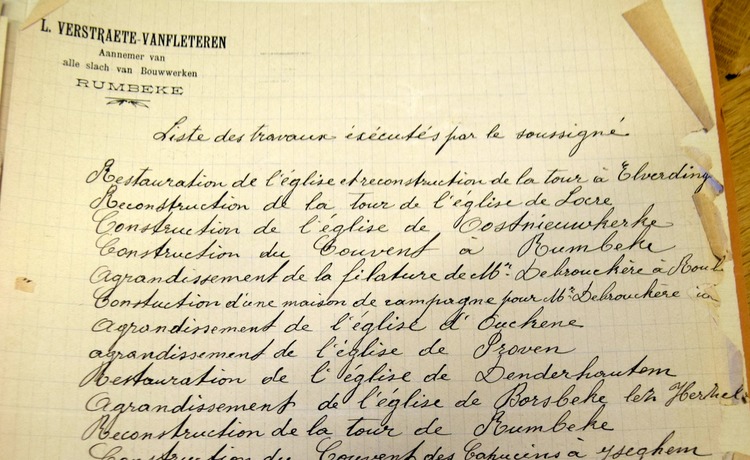 L. VERSTRAETE-VANFLETEREN
Aannemer van
alle slach van Bouwwerken
RUMBEKE
Liste des travaux éxécutés par le soussigné
Restauration de l'église et reconstruction de la tour à Elverding
Reconstruction de la tour de l'église de Locre
Construction de l'église de Oostnieuwkerke
Construction du Couvent a Rumbeke
Agrandissement de la filature de Mr. Debrouckère à Roul
Constuction d'une maison de campagne pour Mr. Debrouckère
Agrandissement de l'église d'Ouckene
agrandissement de l'église de Proven
Restauration de l'église de Denderhautem
Agrandissement de l'église de Borsbeke lez
Reconstruction de la tour de Rumbeke
Construction du Couvent des Capucins à Yseghem